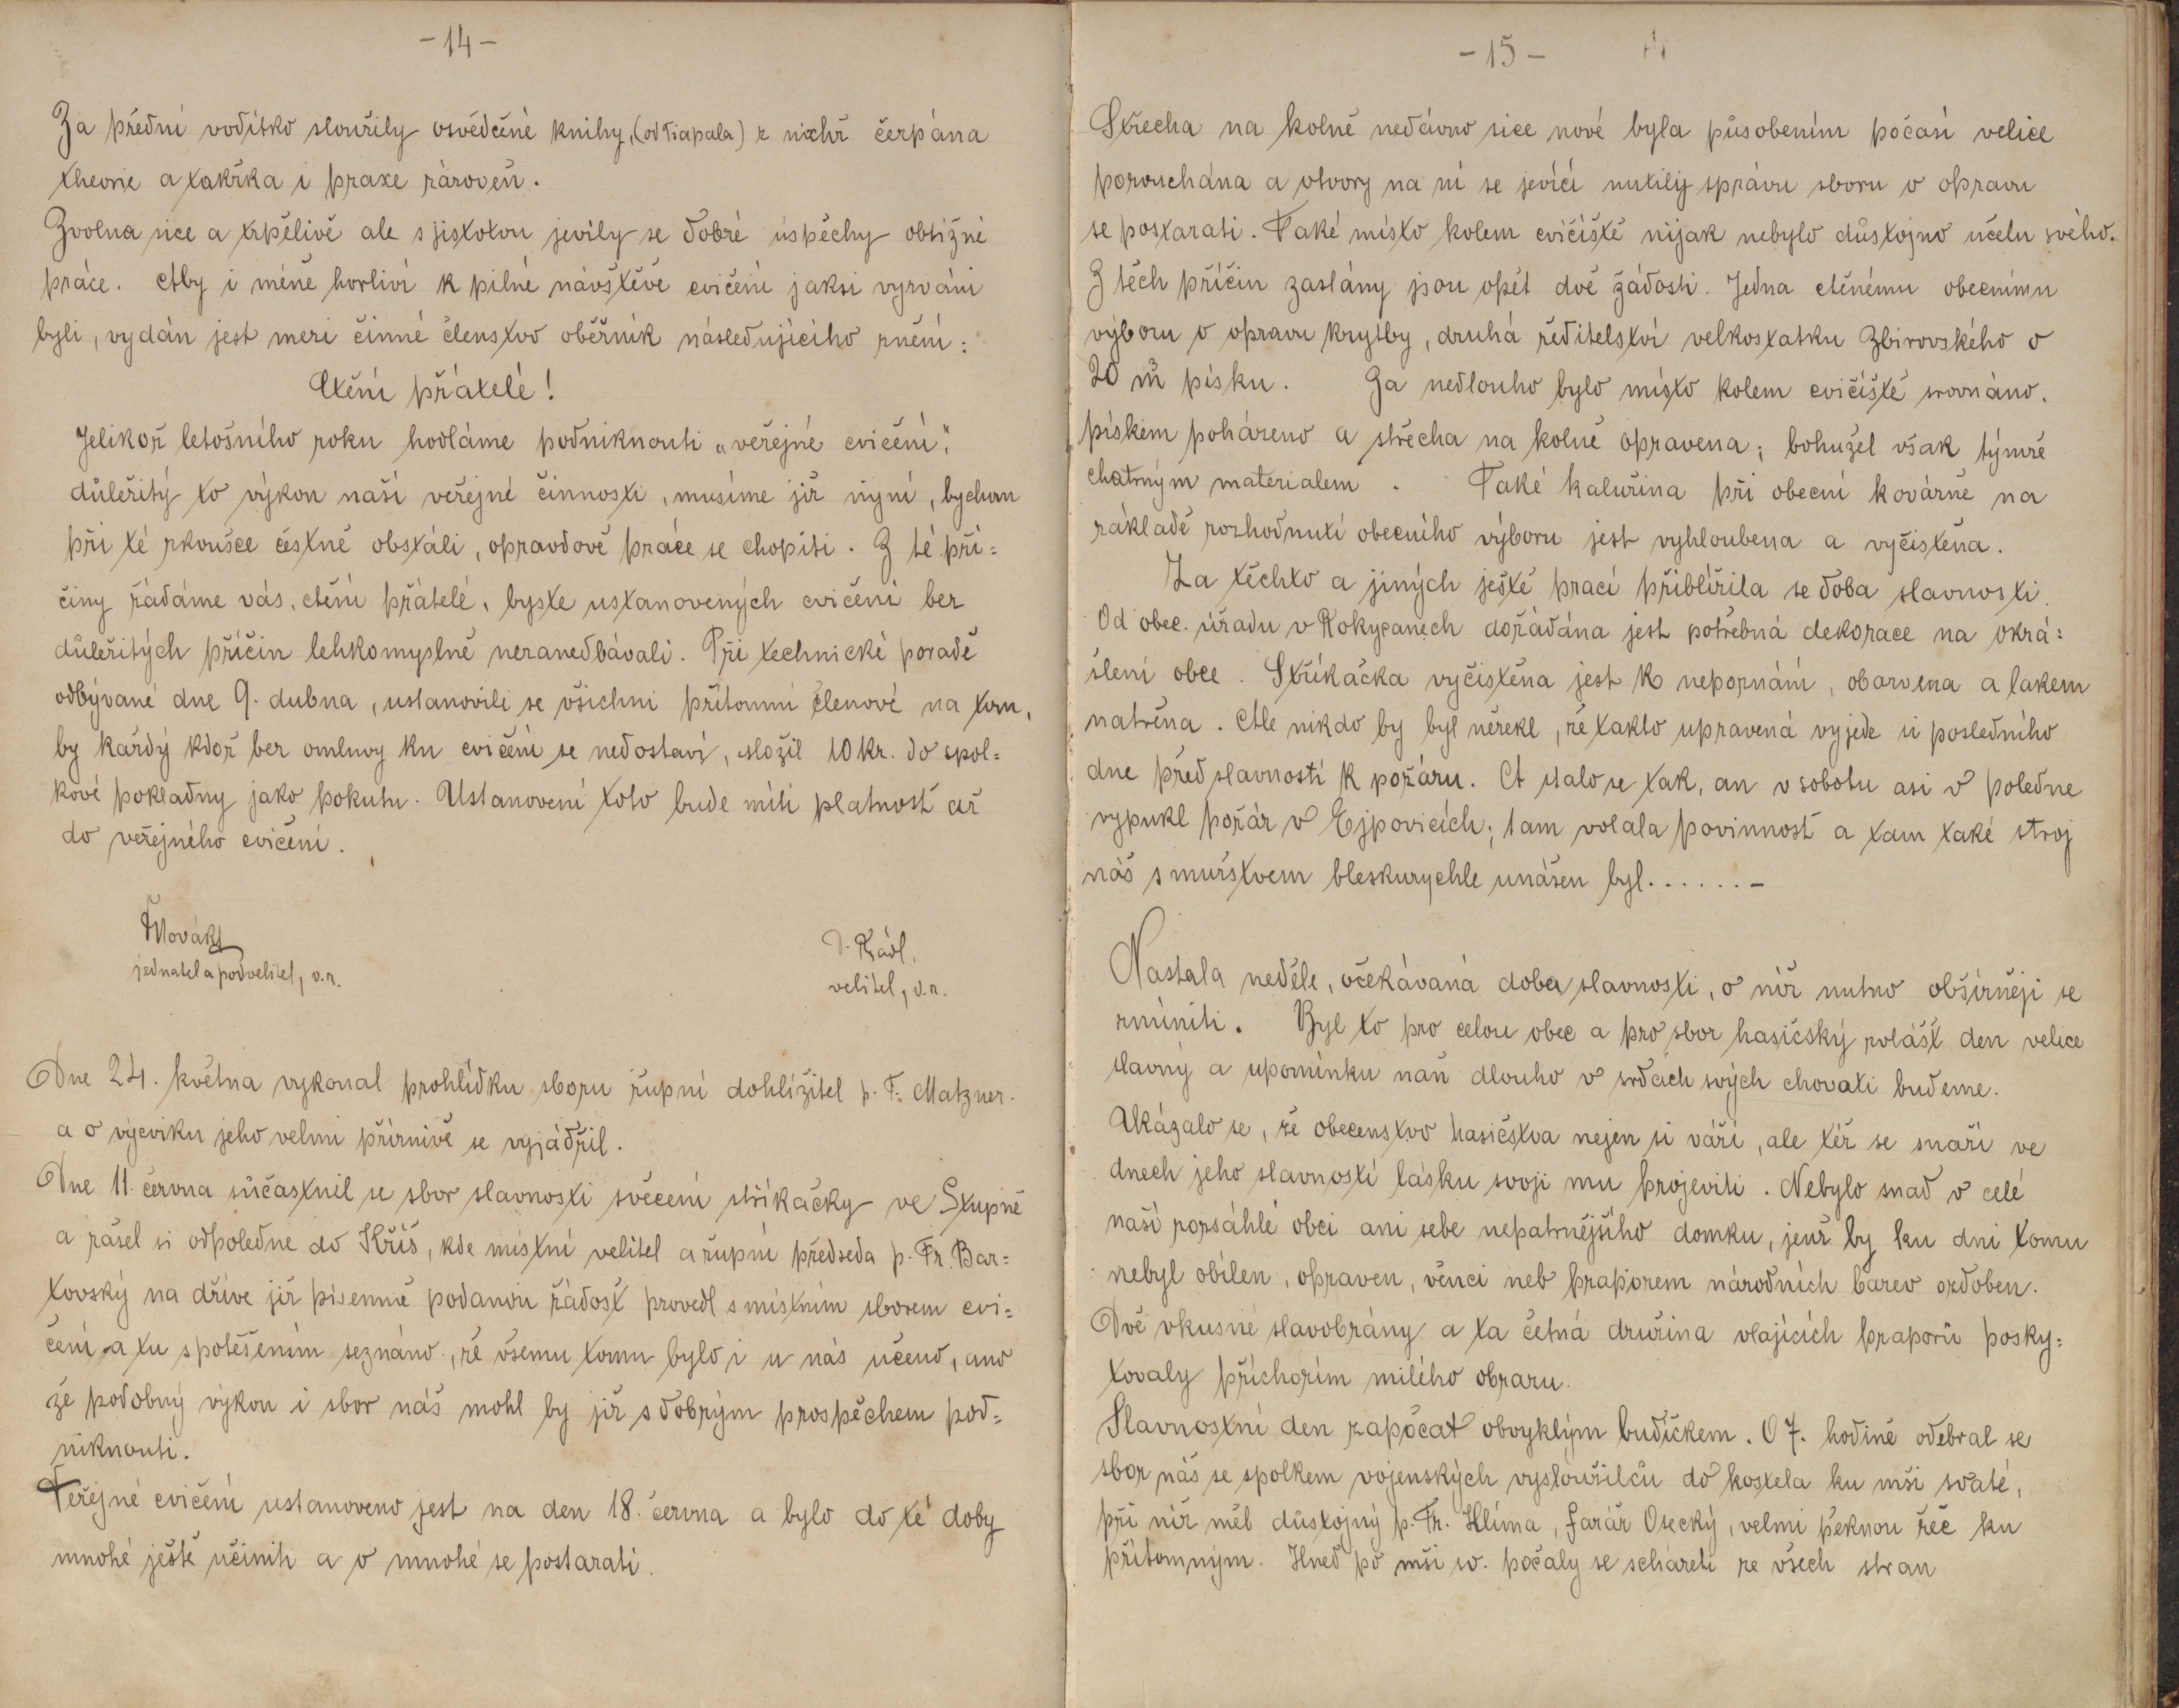 - 14 -
Za přední vodítko sloužily osvědčené knihy, (od Tiapala) z nichž čerpána
theorie a takřka i praxe zároveň.
Zvolna sice a trpělivě ale s jistotou jevily se dobré úspěchy obtížné
práce. Aby i méně horliví k pilné návštěvě cvičení jaksi vyzváni
byli, vydán jest mezi činné členstvo oběžník následujícího znění:
Ctění přátelé!
Jelikož letošního roku hodláme podniknouti „veřejné cvičení",
důležitý to výkon naší veřejné činnosti, musíme již nyní, bychom
při té zkoušce čestně obstáli, opravdově práce se chopiti. Z té pří=
činy žádáme vás, ctění přátelé, byste ustanovených cvičení bez
důležitých příčin lehkomyslně nezanedbávali. Při technické poradě
odbývané dne 9. dubna, ustanovili se všichni přítomní členové na tom,
by každý kdož bez omluvy ku cvičení se nedostaví, složil 10 kr. do spol=
kové pokladny jako pokutu. Ustanovení toto bude míti platnost až
do veřejného cvičení.
Novák
jednatel a podvelitel, v.r.
Kádl,
velitel, v.r.
Dne 24. května vykonal prohlídku sboru župní dohlížitel p. F. Matzner.
a o výcviku jeho velmi příznivě se vyjádřil.
Dne 11. června súčastnil se sbor slavnosti svěcení stříkačky ve Stupně
a zašel si odpoledne do Kříš, kde místní velitel a župní předseda p. Fr. Bar=
tovský na dříve již písemně podanou žádost provedl s místním sborem cvi=
čení a tu s potěšením seznáno, že všemu tomu bylo i u nás učeno, ano
že podobný výkon i sbor náš mohl by již s dobrým prospěchem pod=
niknouti.
Veřejné cvičení ustanoveno jest na den 18. června a bylo do té doby
mnohé ještě učiniti a o mnohé se postarati.
- 15 -
Střecha na kolně nedávno sice nové byla působením počasí velice
porouchána a otvory na ní se jevící nutily správu sboru o opravu
se postarati. Také místo kolem cvičiště nijak nebylo důstojno účelu svého.
Z těch příčin zaslány jsou opět dvě žádosti. Jedna ctěnému obecnímu
výboru o opravu krytby, druhá ředitelství velkostatku Zbirovského o
20 m̃ písku. Za nedlouho bylo místo kolem cvičiště srovnáno,
pískem poházeno a střecha na kolně opravena; bohužel však týmže
chatrným materialem. Také kalužina při obecní kovárně na
základě rozhodnutí obecního výboru jest vyhloubena a vyčistěna.
Za těchto a jiných ještě prací přiblížila se doba slavnosti.
Od obec. úřadu v Rokycanech dožádána jest potřebná dekorace na okrá=
šlení obce. Stříkačka vyčistěna jest k nepoznání, obarvena a lakem
natřena. Ale nikdo by byl neřekl, že takto upravená vyjede si posledního
dne před slavností k požáru. A stalo se tak, an v sobotu asi v poledne
vypukl požár v Ejpovicích; tam volala povinnost a tam také stroj
náš s mužstvem bleskurychle unášen byl. . . . . . -
Nastala neděle, očekávaná doba slavnosti, o níž nutno obšírněji se
zmíniti. Byl to pro celou obec a pro sbor hasičský zvlášť den velice
slavný a upomínku naň dlouho v srdcích svých chovati budeme.
Ukázalo se, že obecenstvo hasičstva nejen si váží, ale též se snaží ve
dnech jeho slavností lásku svoji mu projeviti. Nebylo snad v celé
naší rozsáhlé obci ani sebe nepatrnějšího domku, jenž by ku dni tomu
nebyl obílen, opraven, věnci neb praporem národních barev ozdoben.
Dvě vkusné slavobrány a ta četná družina vlajících praporů posky=
tovaly příchozím milého obrazu.
Slavnostní den započat obvyklým budíčkem. O 7. hodině odebral se
sbor náš se spolkem vojenských vysloužilců do kostela ku mši svaté,
při níž měl důstojný p. Fr. Hlíma, farář Osecký, velmi pěknou řeč ku
přítomným. Hned po mši sv. počaly se scházeti ze všech stran